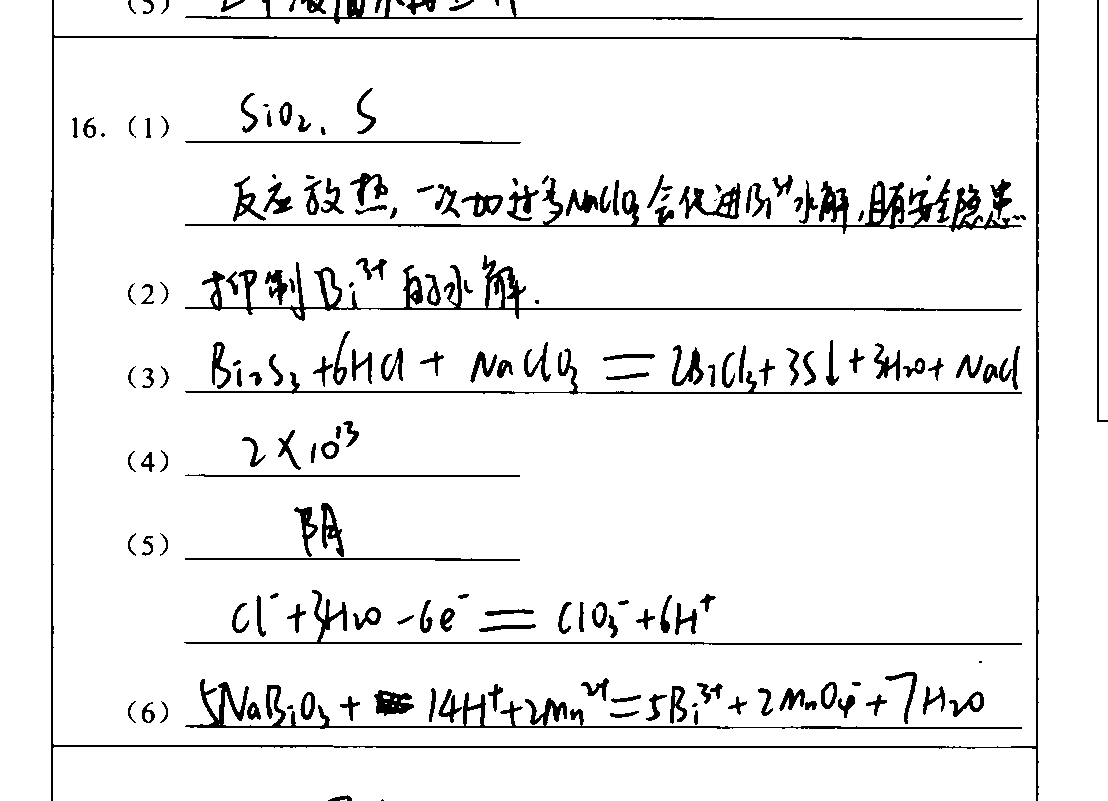 (5)
16. (1) SiO₂、S
反应放热,一次加过多NaClO₃会促进Bi³⁺水解,且有安全隐患
(2) 抑制Bi³⁺的水解.
(3) Bi₂S₃+6HCl+NaClO₃=2BiCl₃+3S↓+3H₂O+NaCl
(4) 2×10¹³
(5) 阴
Cl⁻+3H₂O-6e⁻=ClO₃⁻+6H⁺
(6) 5NaBiO₃+14H⁺+2Mn²⁺=5Bi³⁺+2MnO₄⁻+7H₂O